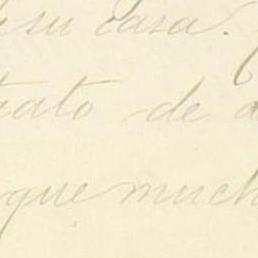 su casa.
trato de a
que much